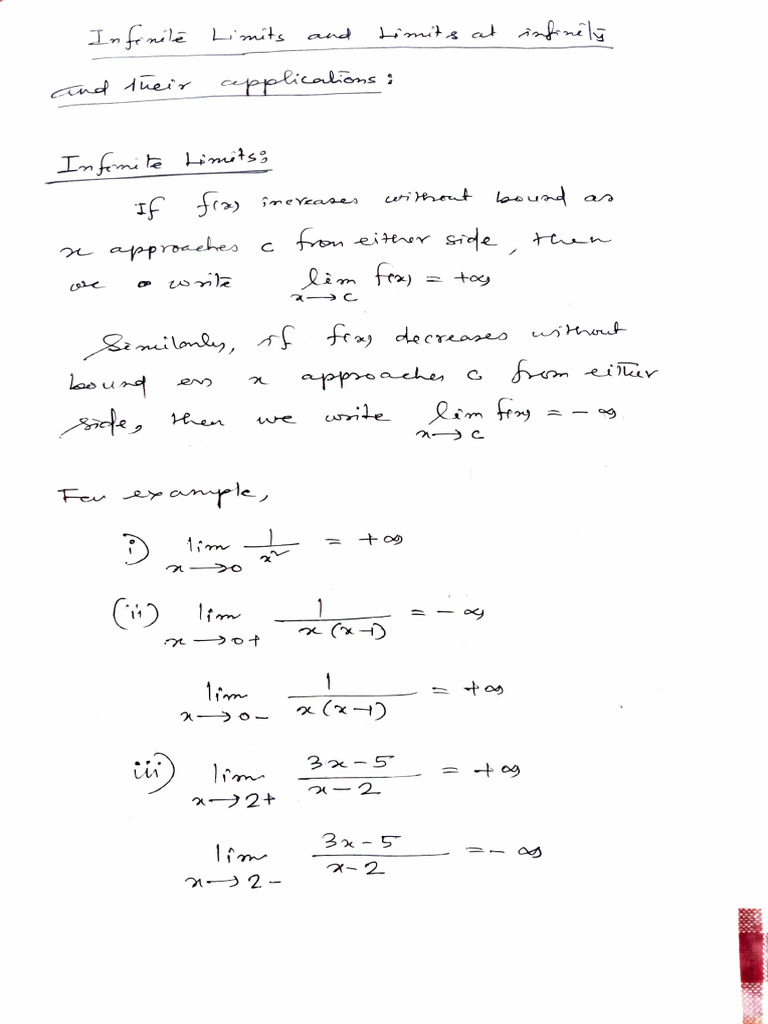 Infinite Limits and Limits at infinity
and their applications:
Infinite Limits:
If f(x) increases without bound as
x approaches c from either side, then
we write lim x→c f(x) = +∞
Similarly, if f(x) decreases without
bound as x approaches c from either
side, then we write lim x→c f(x) = -∞
For example,
i) lim x→0 1/x² = +∞
(ii) lim x→0+ 1/x(x-1) = -∞
lim x→0- 1/x(x-1) = +∞
iii) lim x→2+ 3x-5/x-2 = +∞
lim x→2- 3x-5/x-2 = -∞